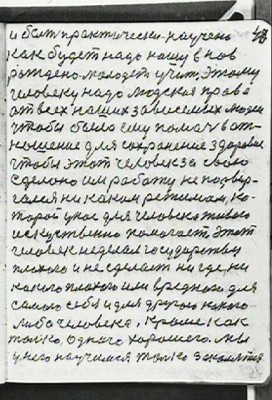 и быт практически научены
как будет надо нашу в нов
рождено молодеть учит, этому
человеку надо людская права
от всех наших зависемых людей
чтобы была ему помач в от-
ношение для сохранение здоровие
чтобы этот человек за свою
сделоно им работу не подвер-
гался ни каким режимам, ко-
торой у нас для человека живого
искуственно помогает. Этот
человек неделал государству
плохого и не сделает ни где, ни
какого плохого или вредного для
самого себя и для другого какого
либо человека, кроме как
только одного хорошего. Мы
у него научимся только закалятся